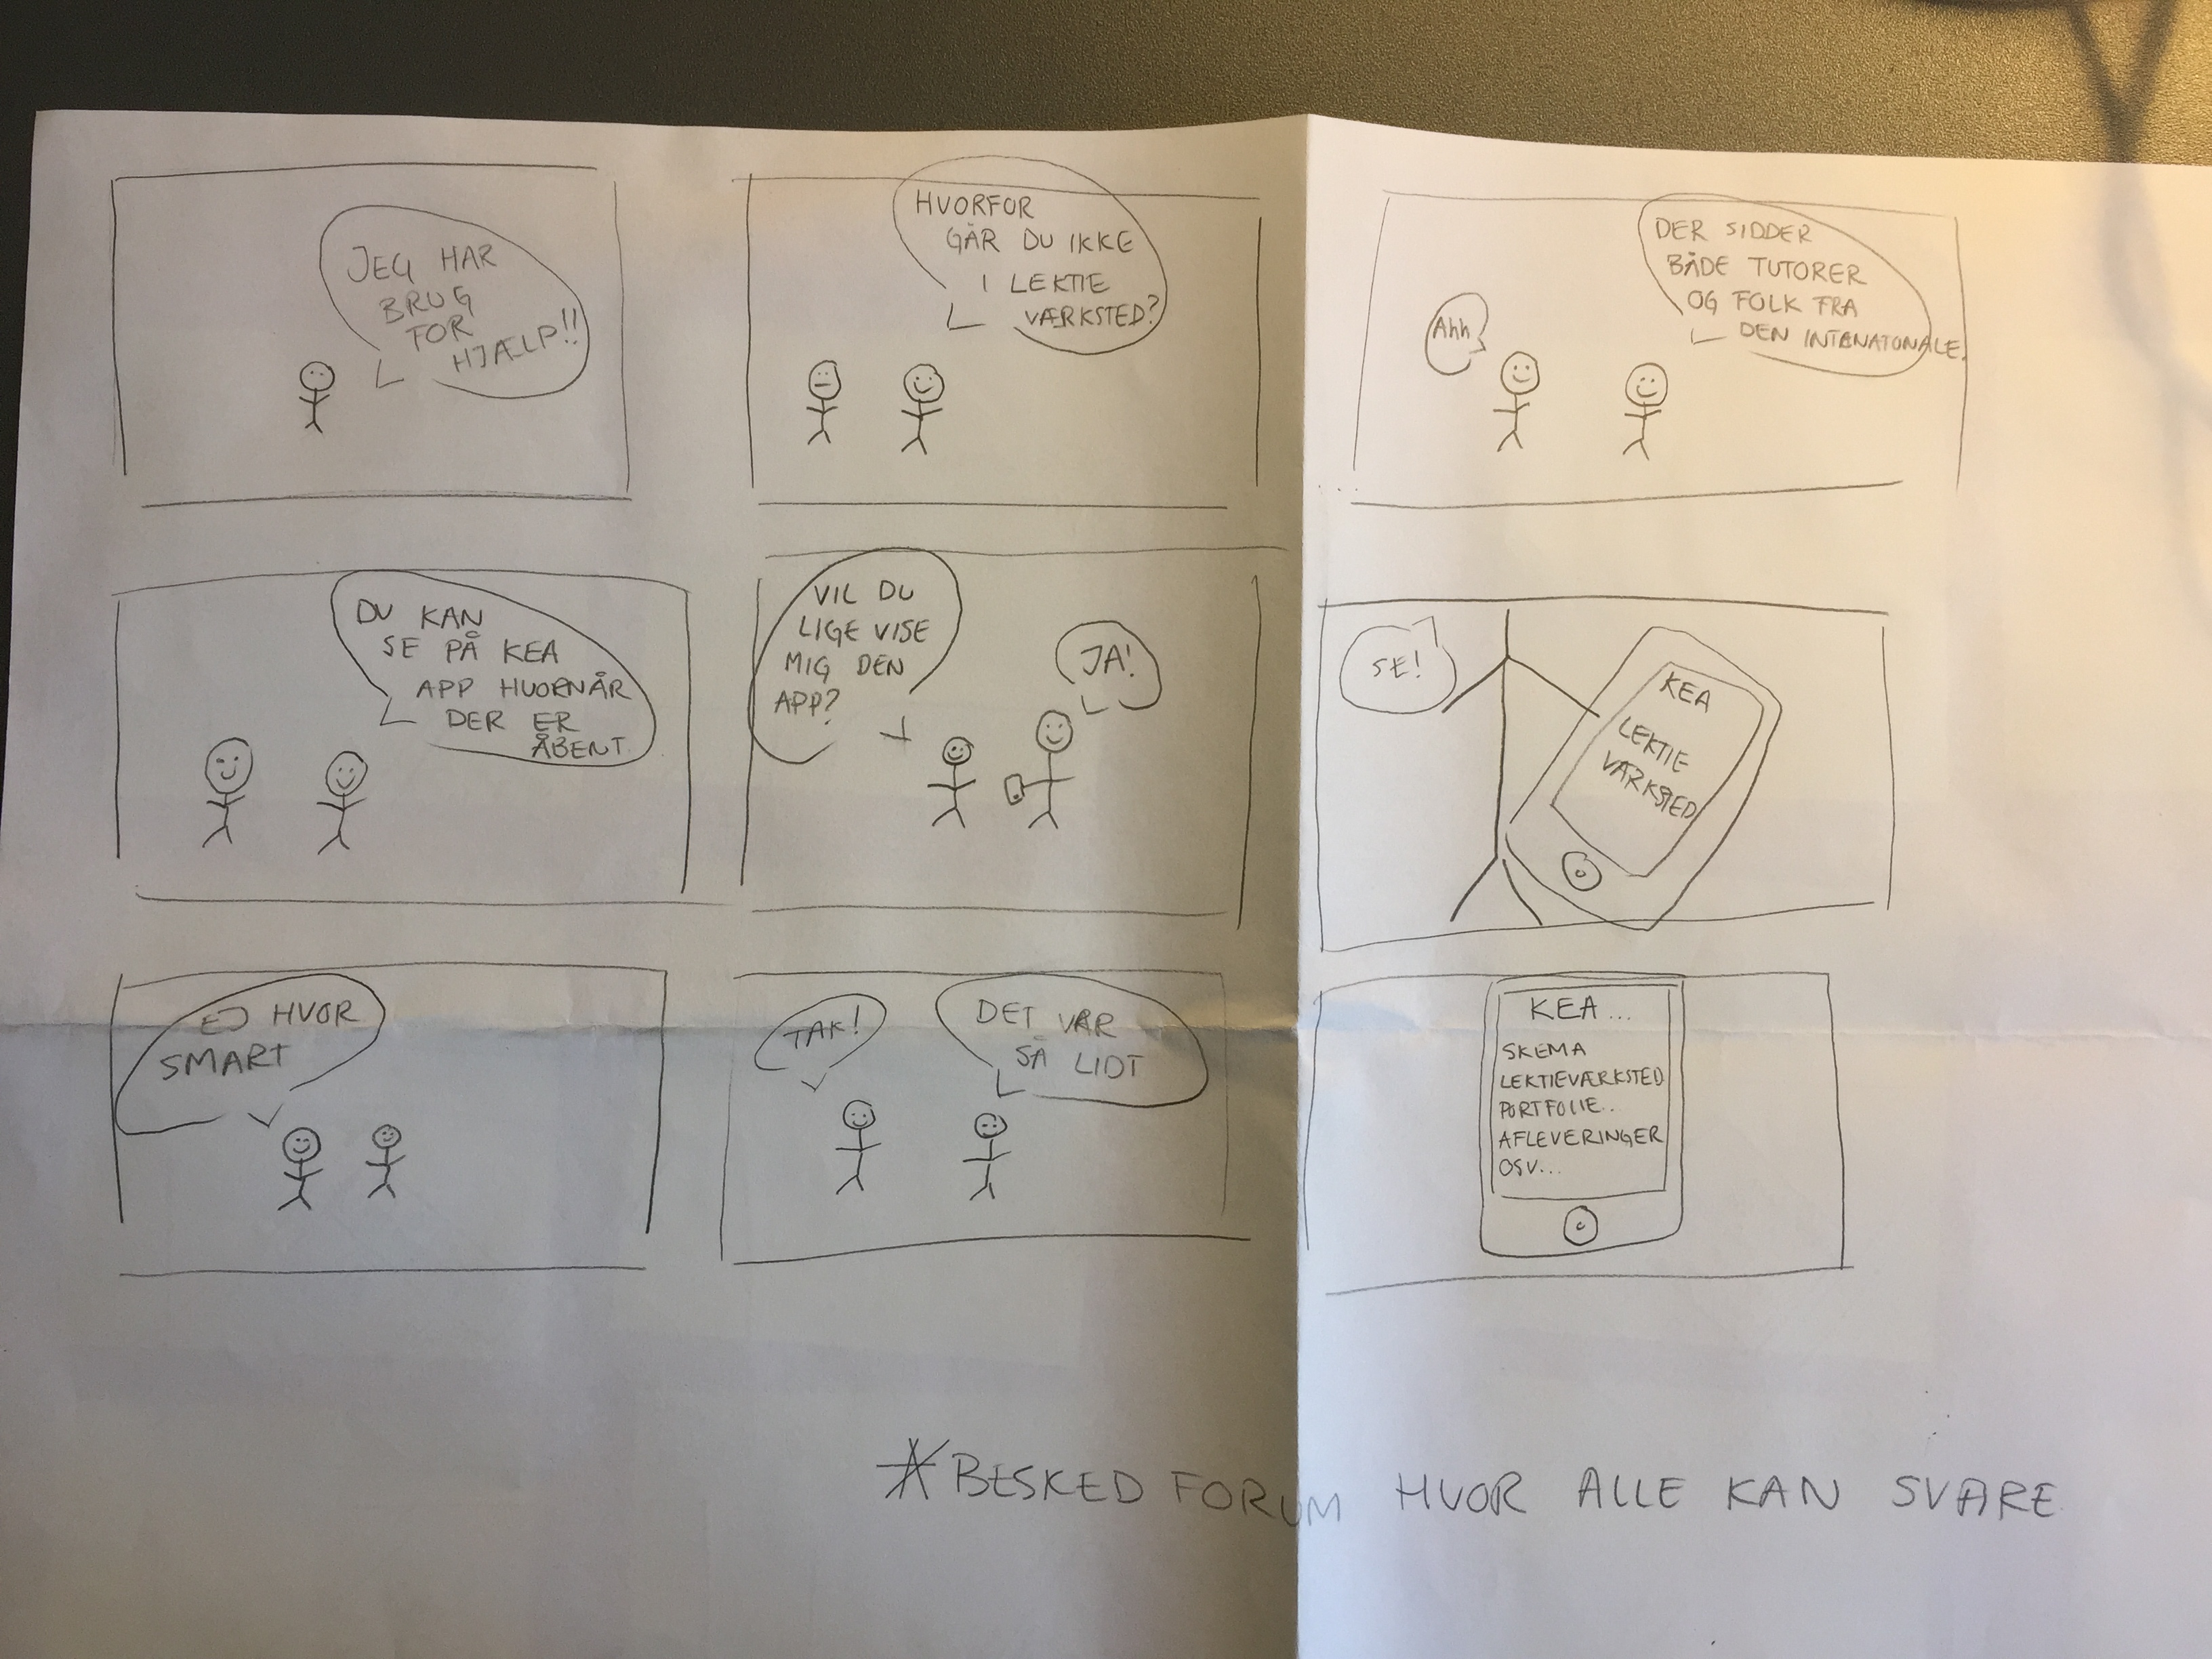 JEG HAR
BRUG
FOR
HJÆLP!!
HVORFOR
GÅR DU IKKE
I LEKTIE
VÆRKSTED?
Ahh
DER SIDDER
BÅDE TUTORER
OG FOLK FRA
DEN INTERNATONALE.
DU KAN
SE PÅ KEA
APP HVORNÅR
DER ER
ÅBENT.
VIL DU
LIGE VISE
MIG DEN
APP?
JA!
SE!
KEA
LEKTIE
VÆRKSTED
EJ HVOR
SMART
TAK!
DET VAR
SÅ LIDT
KEA...
SKEMA
LEKTIEVÆRKSTED
PORTFOLIE..
AFLEVERINGER
OSV...
*BESKED FORUM HVOR ALLE KAN SVARE